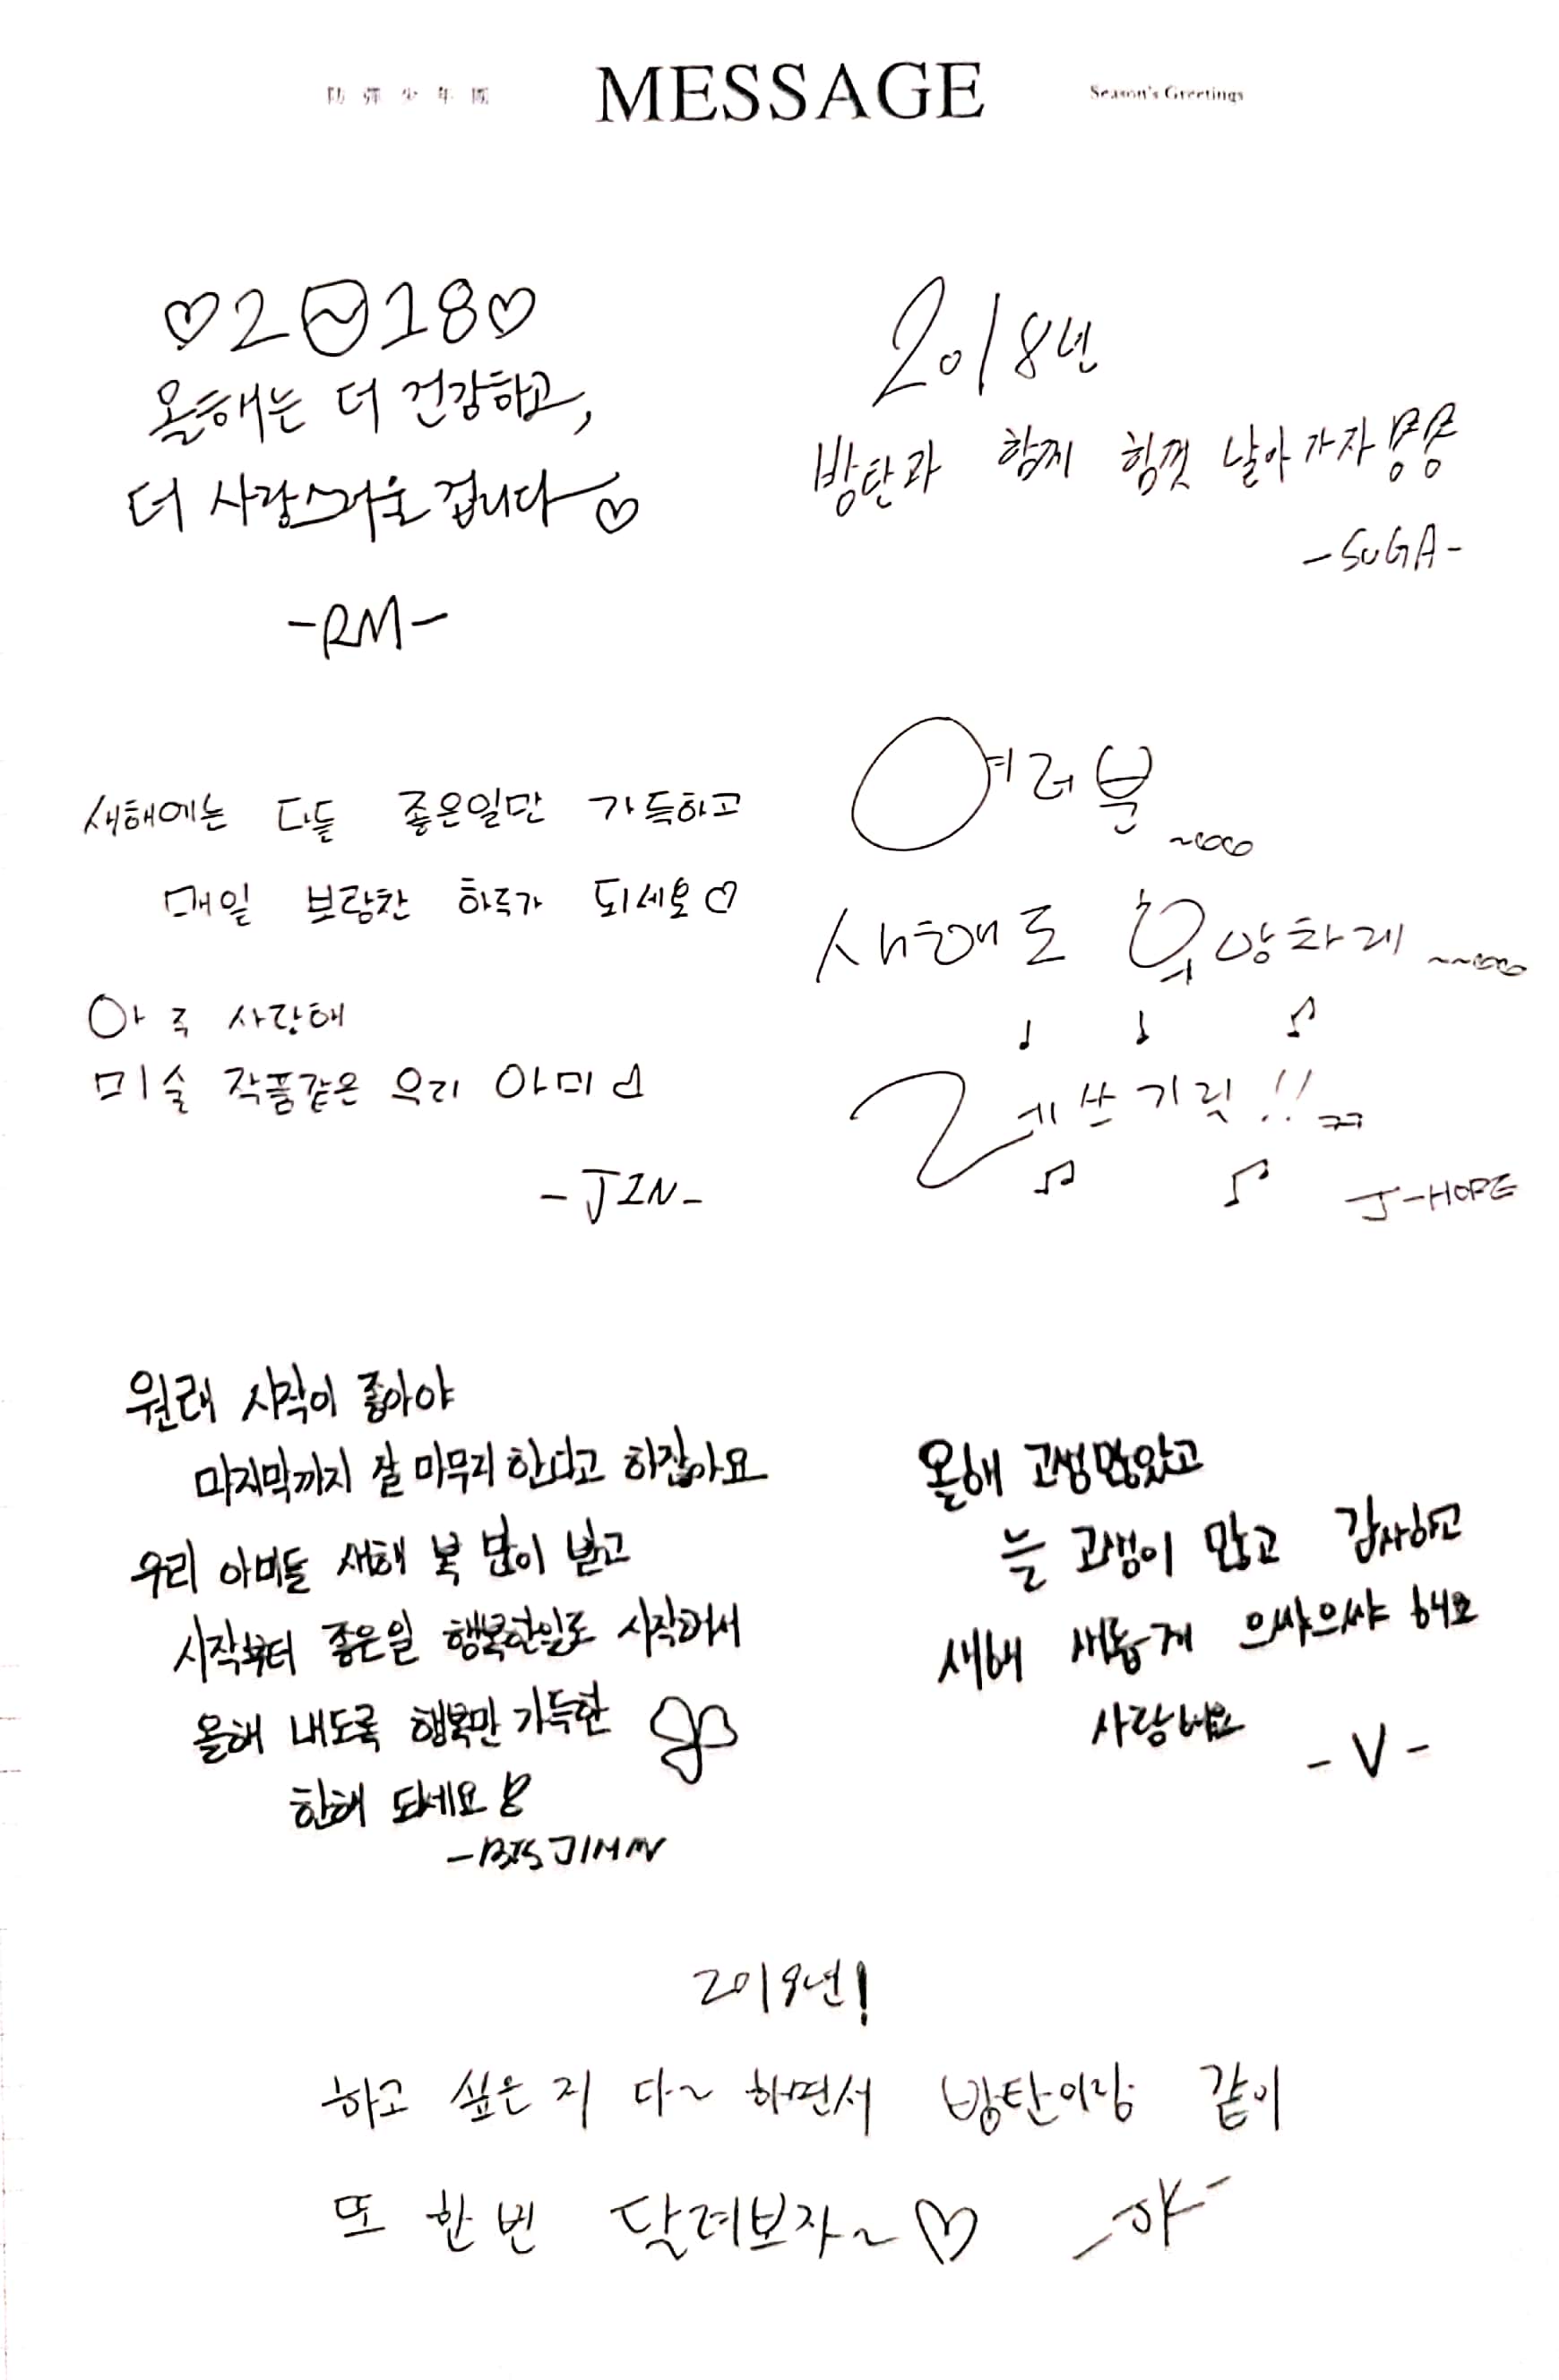 防彈少年團 MESSAGE Season's Greetings
♡2018♡
올해는 더 건강하고,
더 사랑스러울 겁니다 ♡
-RM-
2018년
방탄과 함께 힘껏 날아가자!!
-SUGA-
새해에는 다들 좋은일만 가득하고
매일 보람찬 하루가 되세요♡
아주 사랑해
미술 작품같은 우리 아미
-JIN-
여러분~
새해도 희망차게~~
♩ ♩ ♫
레쓰기릿!! ㄲ
♫ ♫
J-HOPE
원래 시작이 좋아야
마지막까지 잘 마무리 한다고 하잖아요
우리 아미들 새해 복 많이 받고
시작부터 좋은일 행복한일로 시작해서
올해 내도록 행복만 가득한
한해 되세요
-BTS JIMIN
올해 고생많았고
늘 고생이 많고 감사하고
새해 새롭게 으쌰으쌰 해요
사랑해요
-V-
2019년!
하고 싶은 거 다~ 하면서 방탄이랑 같이
또 한 번 달려보자~♡
-JK-